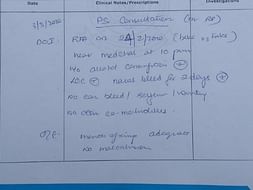 Date Clinical Notes/Prescriptions Investigations
PS Consultation
DOI: RTA on 24/2/2020 (bike vs bike)
near medchal at 10 pm
H/o alcohol consumption +
LOC + nasal bleed for 2 days +
No ear bleed / seizure / vomiting
No other co-morbidities
O/E: mouth opening adequate
No malocclusion